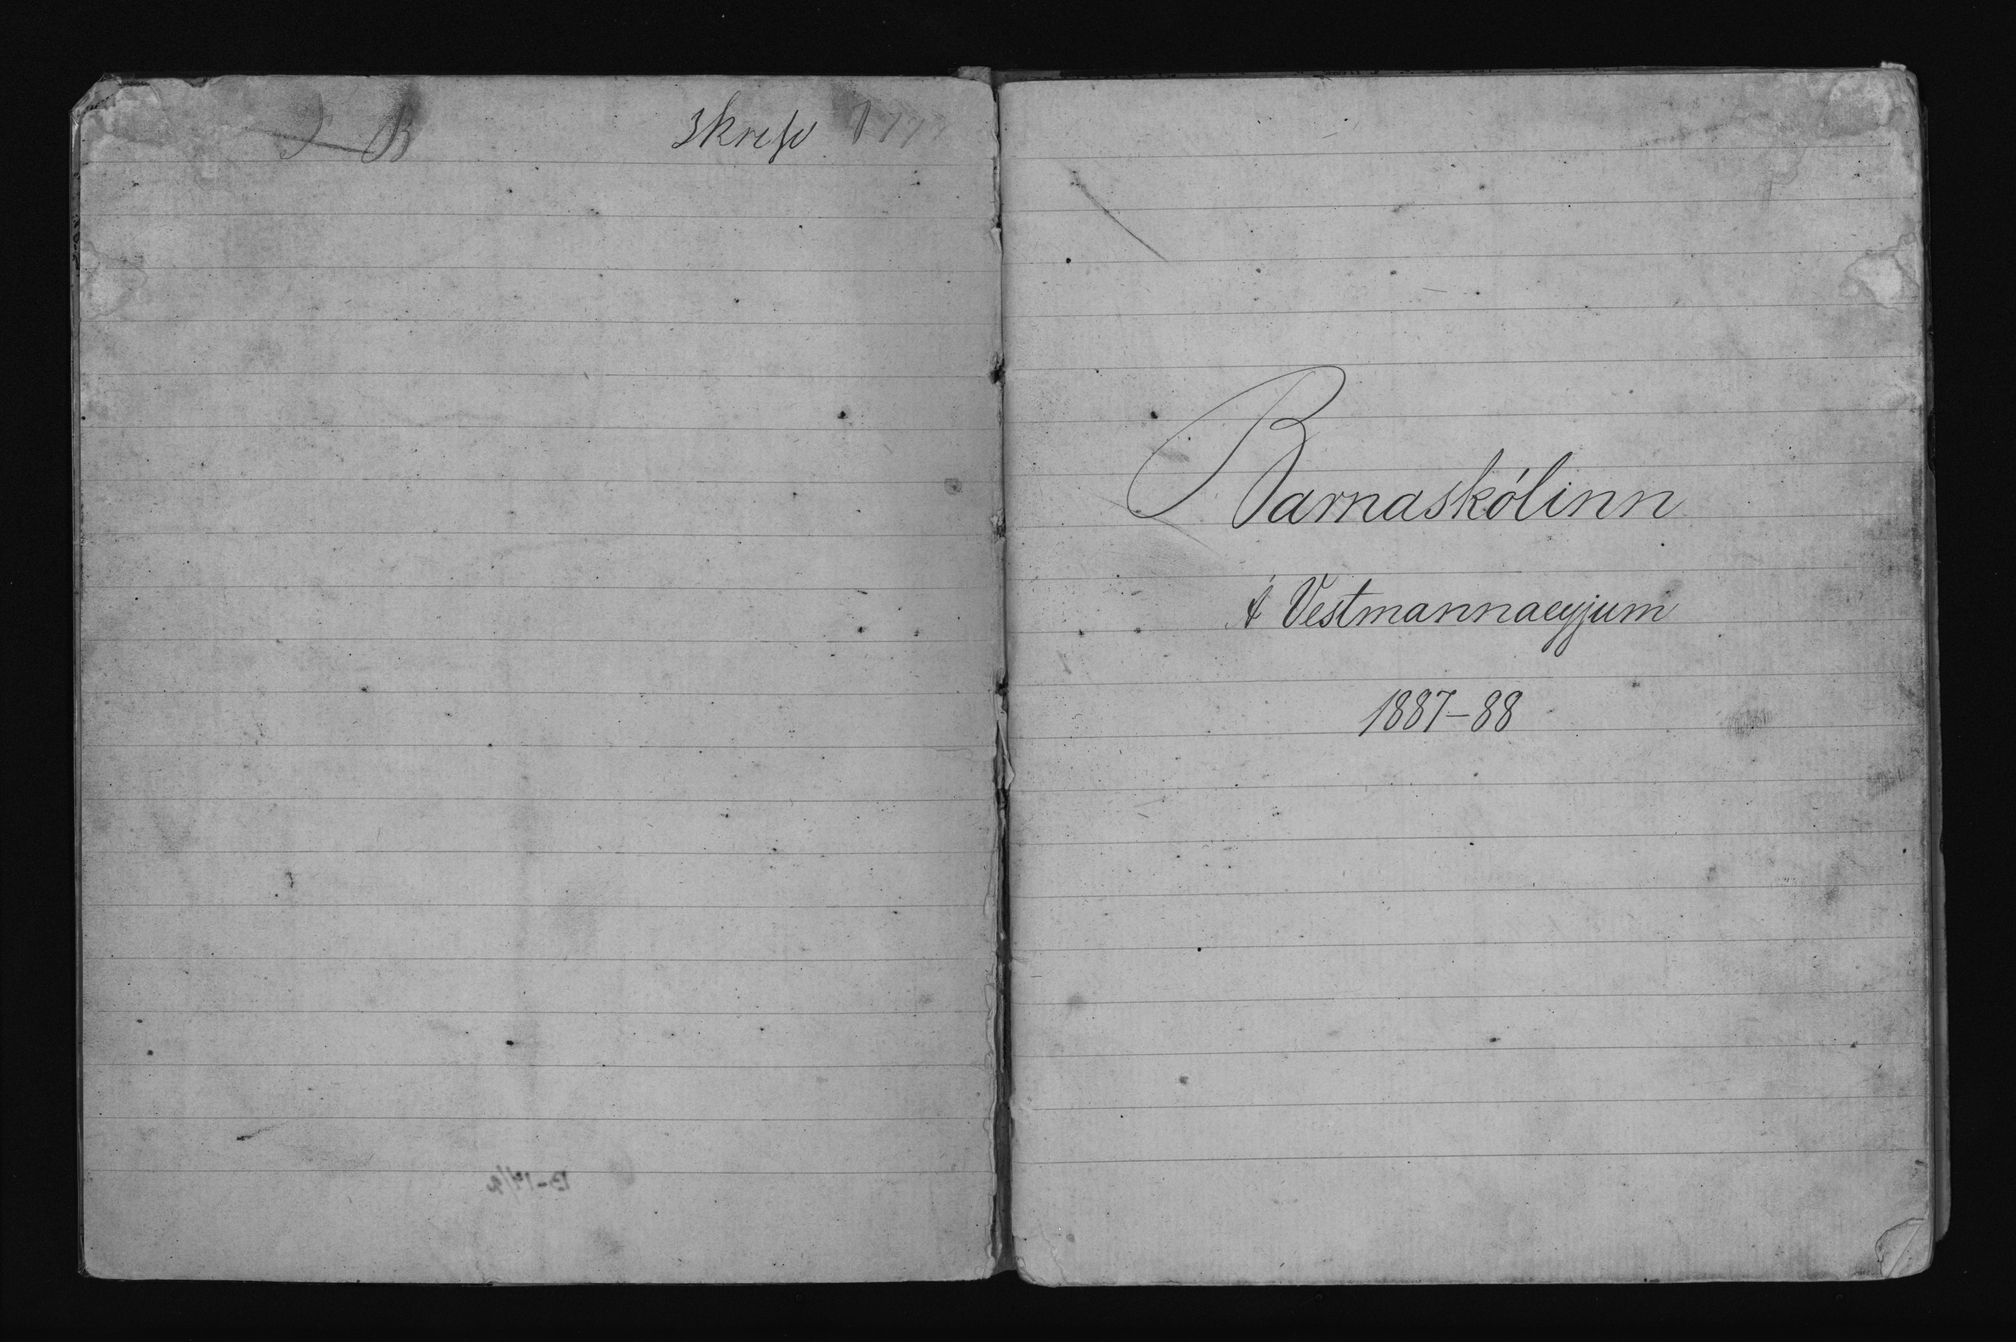 B
Barnaskólinn
á Vestmannaeyjum
1887-88